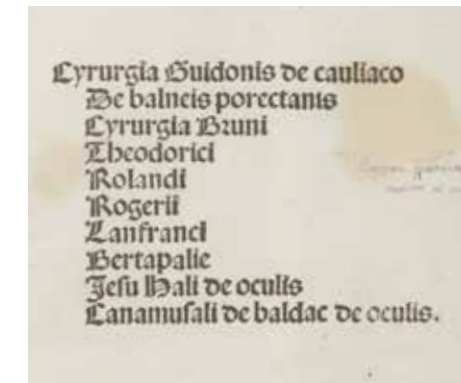 Cyrurgia Guidonis de cauliaco
De balneis porectanis
Cyrurgia Bruni
Theodorici
Rolandi
Rogerii
Lanfranci
Bertapalie
Jesu Hali de oculis
Canamusali de baldac de oculis.